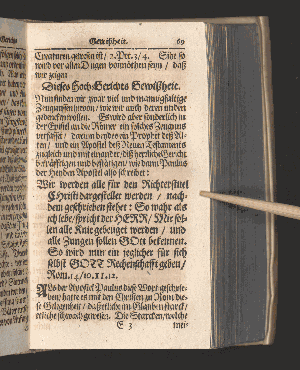 Gewißheit. 69
Creaturen gewesen ist / 2. Pet. 3/4. Sihe so
wird vor allen Dingen vonnöthen seyn / daß
wir zeigen
Dieses Hoch-Gerichts Gewißheit.
Nun finden wir zwar viel und mannigfaltige
Zeugnussen hievon / wie wir auch deren
gedencken wollen. Es wird aber sonderlich in
der Epistel an die Römer ein solches Zeugnus
verfasst / darinn beydes ein Prophet deß Al-
ten / und ein Apostel deß Neuen Testaments
zugleich und mit einander / diß herrliche Gericht
bekräfftigen und bestätigen / wie dann Paulus
der Heyden Apostel also schreibet:
Wir werden alle für den Richterstuel
CHristi dargestellet werden / nach-
dem geschrieben stehet: So wahr als
ich lebe / spricht der HERR / Mir sol-
len alle Knie gebeuget werden / und
alle Zungen sollen GOtt bekennen.
So wird nun ein jeglicher für sich
selbst GOTT Rechenschafft geben /
Rom. 14/10.11.12.
ALs der Apostel Paulus diese Wort geschrie-
ben / hatte es mit den Christen zu Rom die-
se Gelegenheit / daß etliche im Glauben starck /
etliche schwach gewesen. Die Starcken / welche
E 3 mei-